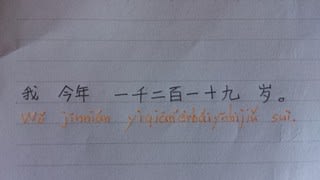 我 今年 一千二百一十九 岁。
Wǒ jīnnián yìqiānèrbǎiyīshíjiǔ suì.